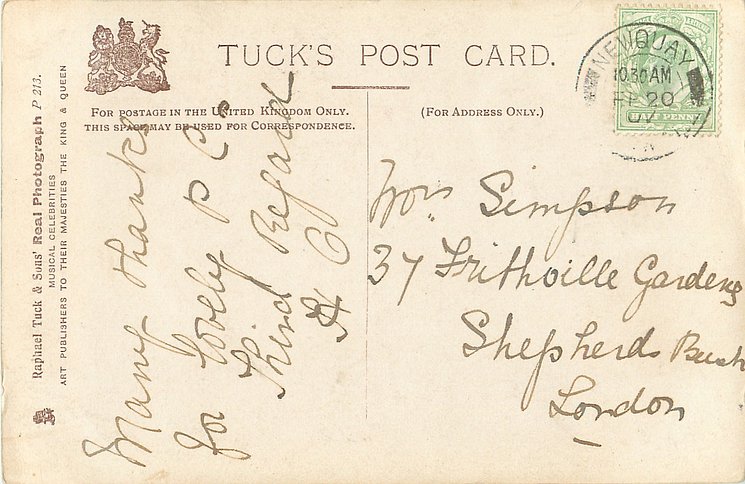 TUCK'S POST CARD.
FOR POSTAGE IN THE UNITED KINGDOM ONLY.
THIS SPACE MAY BE USED FOR CORRESPONDENCE.
(FOR ADDRESS ONLY.)
Raphael Tuck & Sons' Real Photograph P 213.
MUSICAL CELEBRITIES
ART PUBLISHERS TO THEIR MAJESTIES THE KING & QUEEN
NEWQUAY
10.30 AM
20
HALF PENNY
Many thanks
for lovely P C
Kind Regard
Mrs Simpson
37 Frithville Gardens
Shepherds Bush
London